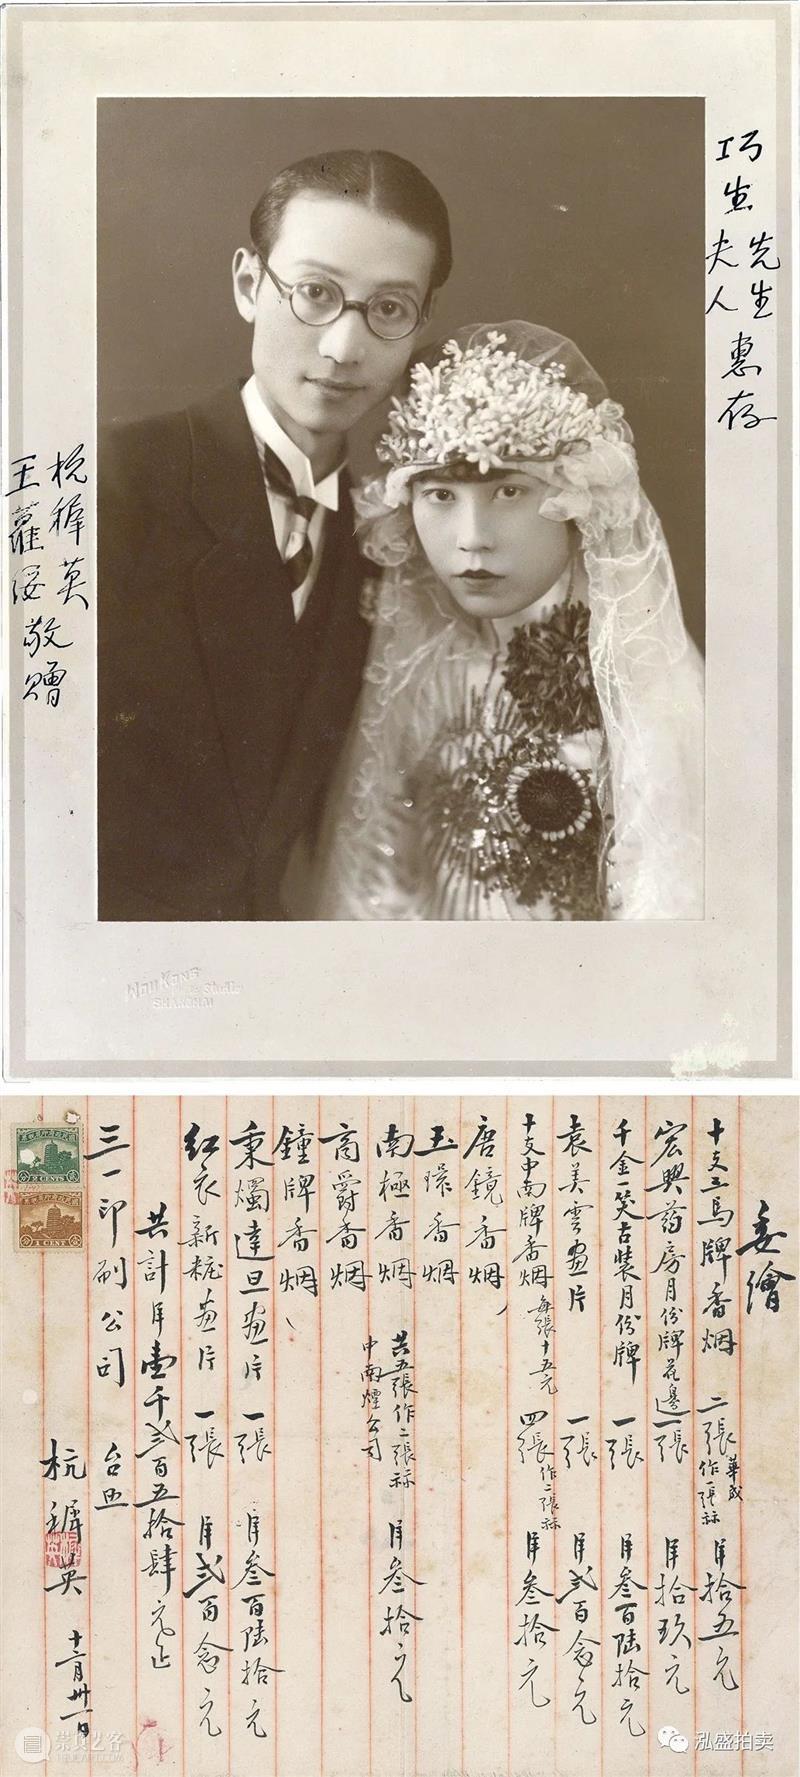 巧生先生
夫人惠存
杭穉英
王蘿绥敬贈
WOU KONG
Studio
SHANGHAI
委繪
十支三馬牌香烟 二張作一張祘 華成 洋拾五元
宏興葯房月份牌花邊一張 洋拾玖元
千金一笑古裝月份牌 一張 洋叁百陸拾元
袁美雲画片 一張 洋弍百念元
十支中南牌香烟 每張十五元 四張作二張祘 洋叁拾元
唐鏡香烟、
玉環香烟
南極香烟 共五張作二張祘 洋叁拾元
中南煙公司
商爵香烟
鐘牌香烟、
秉燭達旦画片 一張 洋叁百陸拾元
紅衣新粧画片 一張 洋弍百念元
共計洋壹千弍百五拾肆元正
三一印刷公司 台照
杭穉英 十二月卅一日
2 CENTS
1 CENT
崇真艺客
泓盛拍卖